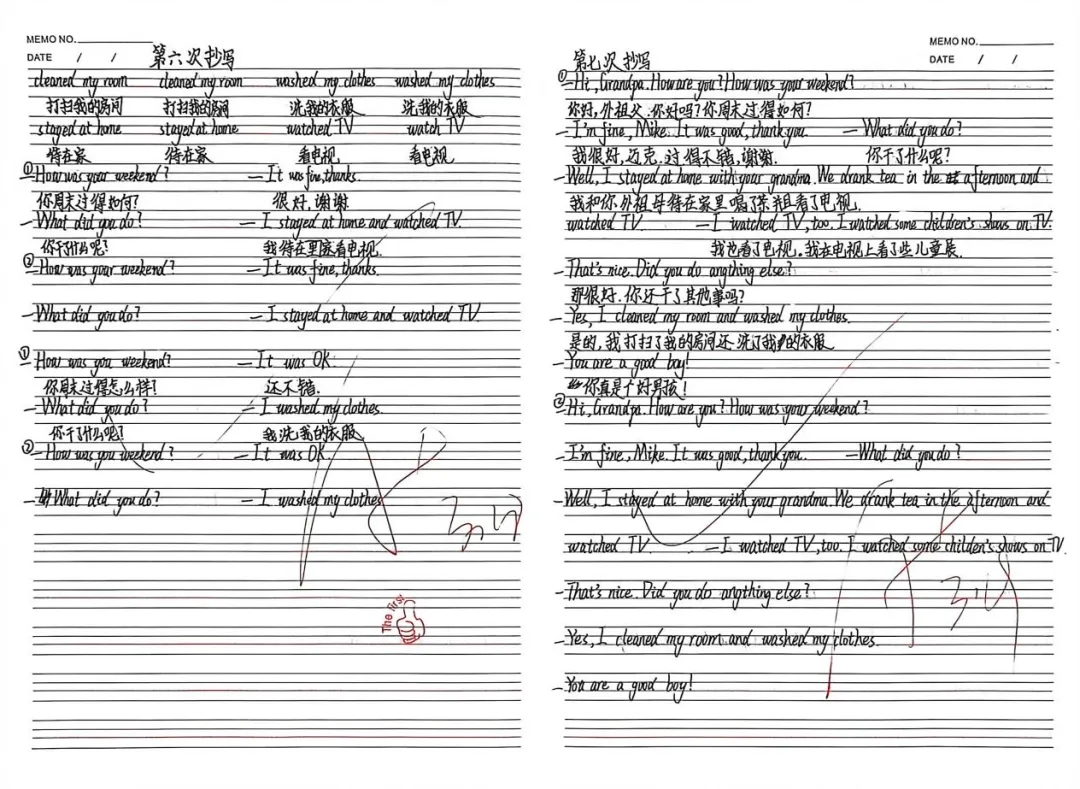 MEMO NO.
DATE / /
第六次抄写
cleaned my room cleaned my room washed my clothes washed my clothes
打扫我的房间 打扫我的房间 洗我的衣服 洗我的衣服
stayed at home stayed at home watched TV watch TV
待在家 待在家 看电视 看电视
① –How was your weekend? – It was fine, thanks.
你周末过得如何? 很好,谢谢.
– What did you do? – I stayed at home and watched TV.
你干了什么呢? 我待在里家看电视.
② –How was your weekend? – It was fine, thanks.
– What did you do? – I stayed at home and watched TV.
① – How was you weekend? – It was OK.
你周末过得怎么样? 还不错.
– What did you do? – I washed my clothes.
你干了什么呢? 我洗我的衣服
② – How was you weekend? – It was OK.
– What did you do? – I washed my clothes
The First
MEMO NO.
DATE / /
第七次抄写
① –Hi, Grandpa. How are you? How was your weekend?
你好,外祖父.你好吗?你周末过得如何?
– I'm fine, Mike. It was good, thank you. – What did you do?
我很好,迈克,过得不错,谢谢. 你干了什么呢?
–Well, I stayed at home with your grandma. We drank tea in the afternoon and
我和你外祖母待在家里喝了茶并且看了电视.
watched TV. – I watched TV, too. I watched some children's shows on TV.
我也看了电视。我在电视上看了些儿童展.
– That's nice. Did you do anything else?
那很好.你还干了其他事吗?
– Yes, I cleaned my room and washed my clothes.
是的,我打扫了我的房间还洗了我的衣服
– You are a good boy!
你真是个好男孩!
② –Hi, Grandpa. How are you? How was your weekend?
– I'm fine, Mike. It was good, thank you. –What did you do?
–Well, I stayed at home with your grandma. We drank tea in the afternoon and
watched TV. – I watched TV, too. I watched some children's shows on TV.
– That's nice. Did you do anything else?
– Yes, I cleaned my room and washed my clothes.
– You are a good boy!